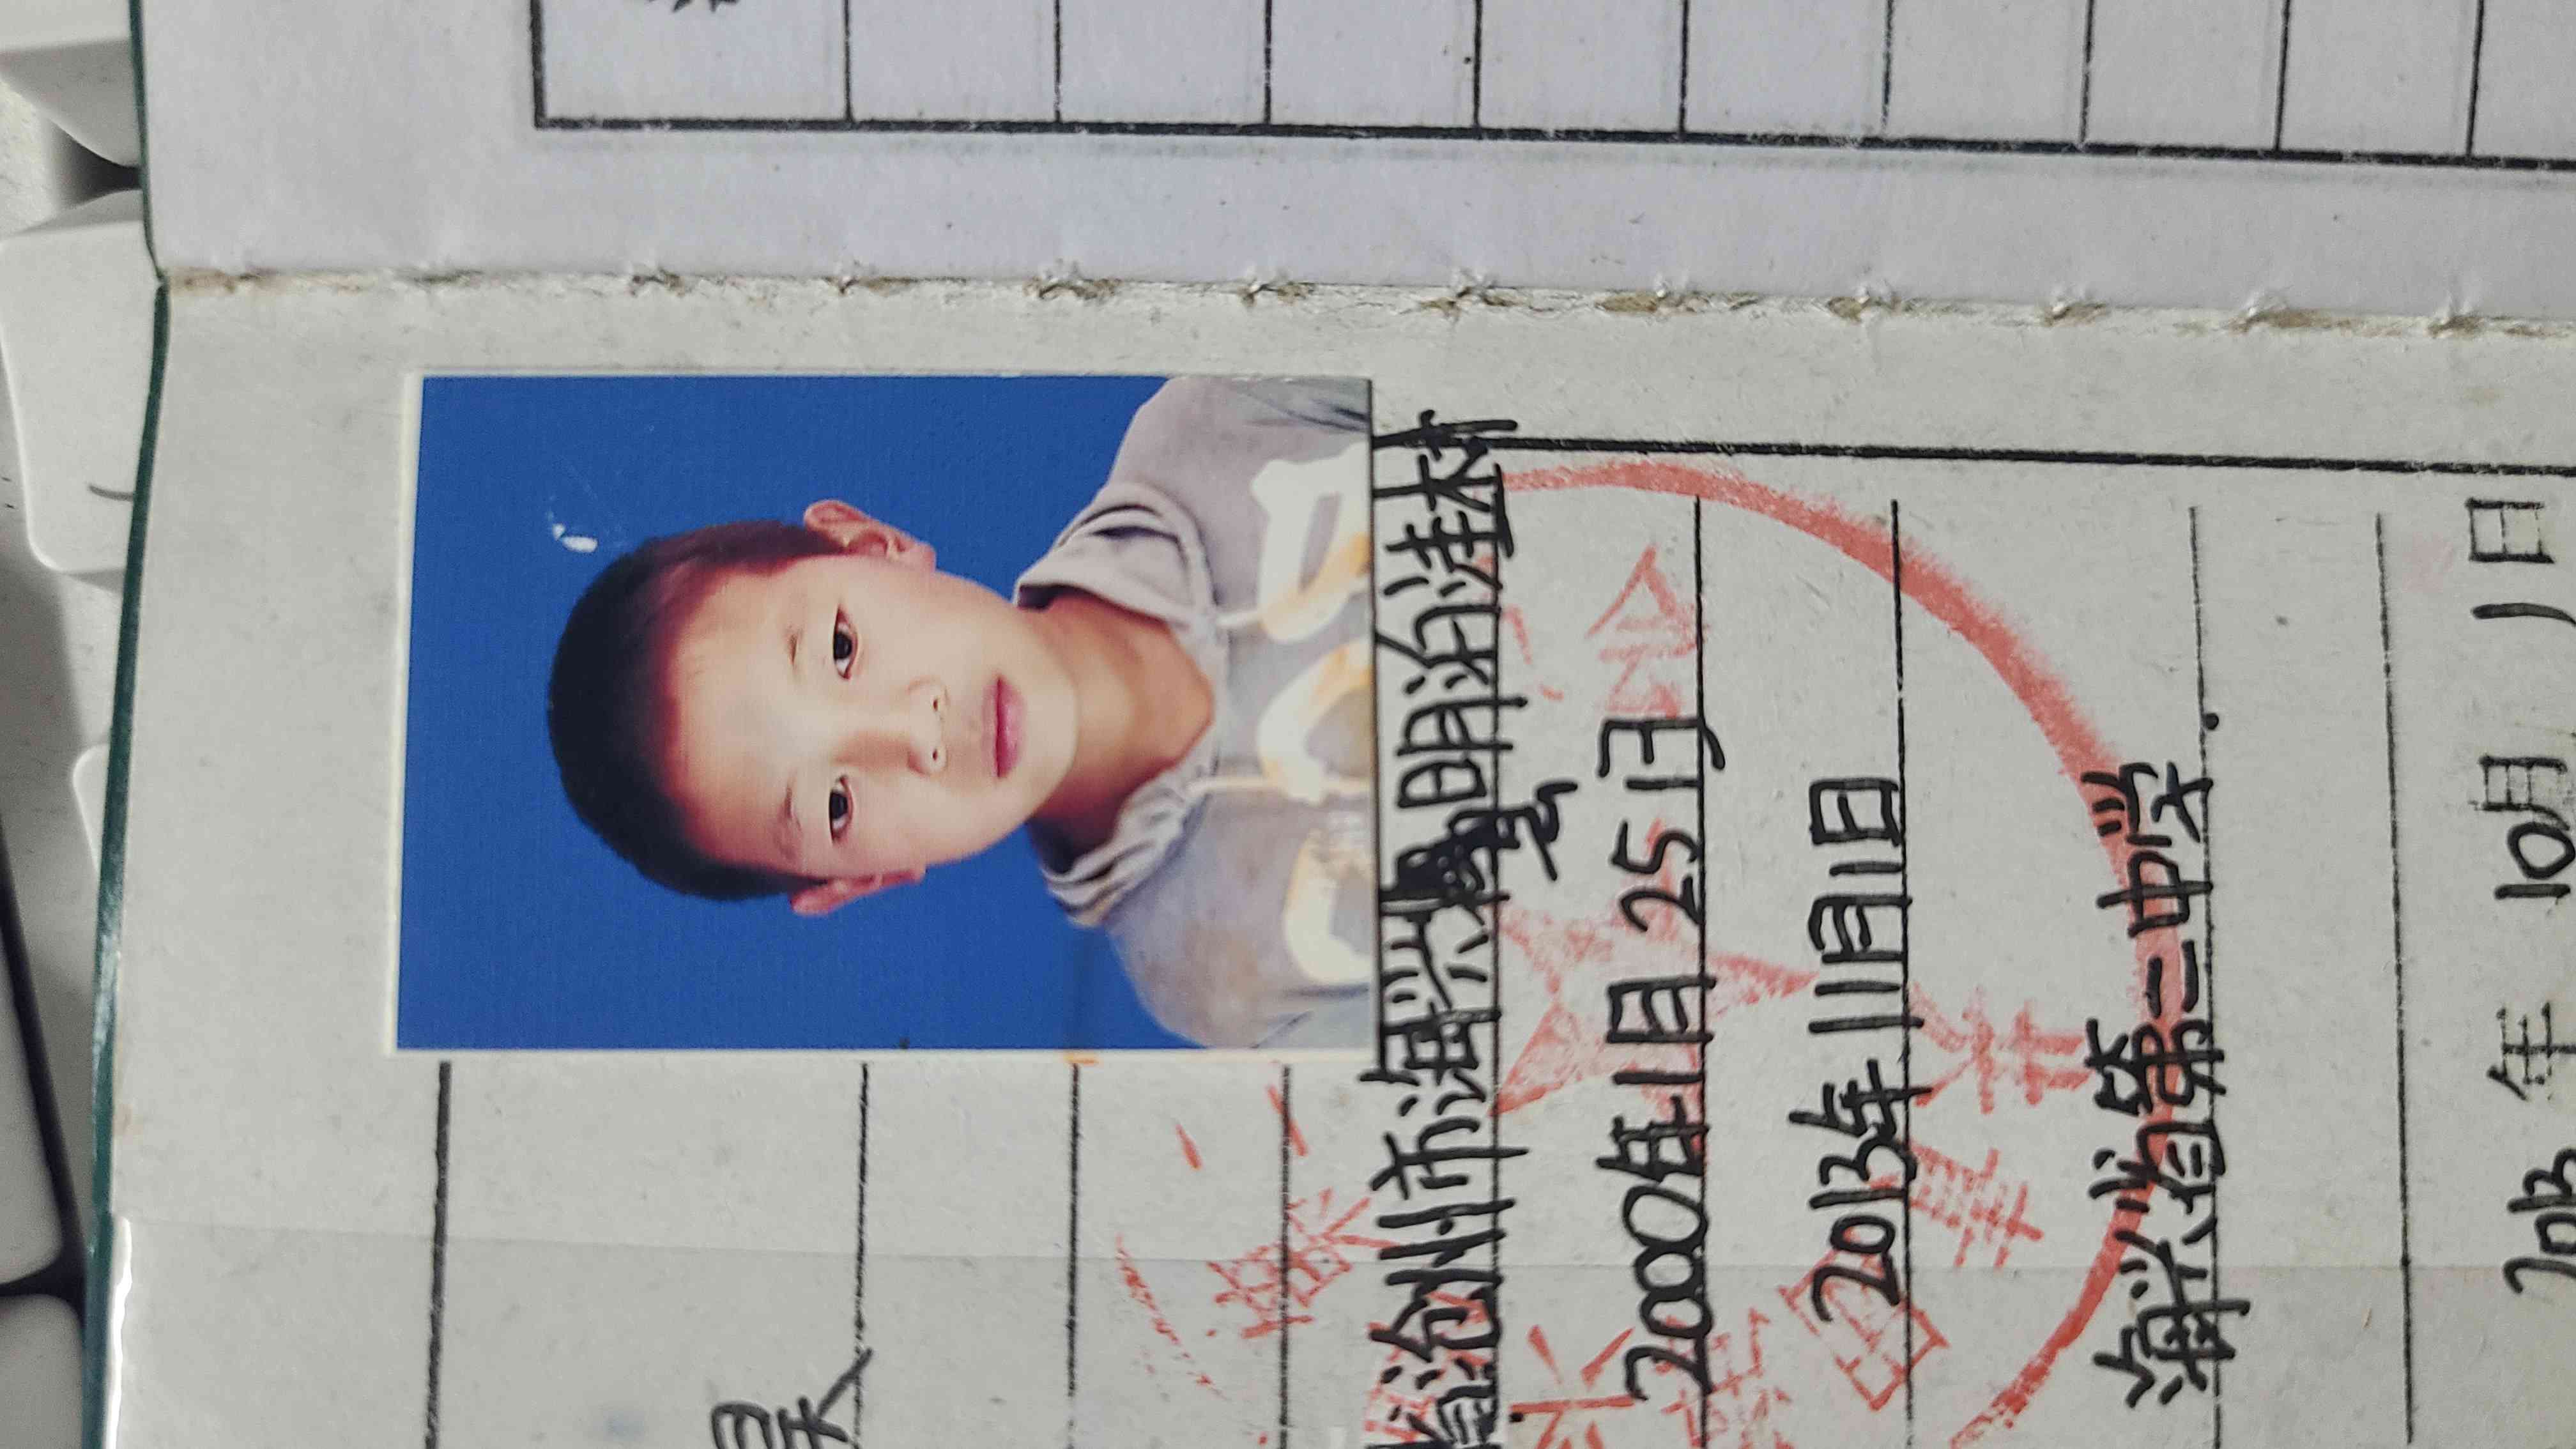 昊
省沧州市海兴县明泊洼村
2000年1月25日
2013年11月1日
海兴省第二中学.
2013年10月1日